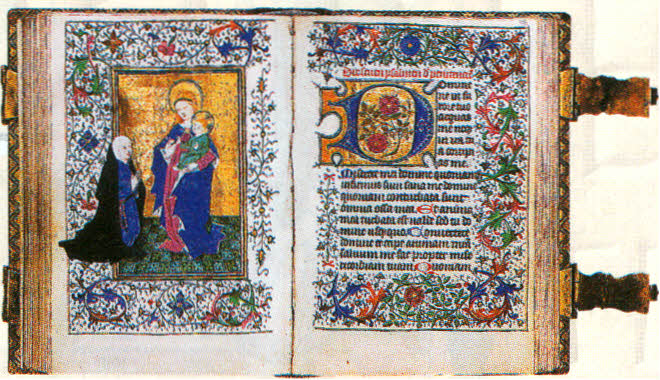 Domine
ne in fu
arguas
me neq
in ira tu
a
as me
Miserere mei domine quoniam
infirmus sum sana me domine
quoniam conturbata sunt
omnia ossa mea Et anima
mea turbata est valde sed tu do
mine usquequo Convertere
domine et eripe animam mea
salvum me fac propter mise
ricordiam tuam Quoniam